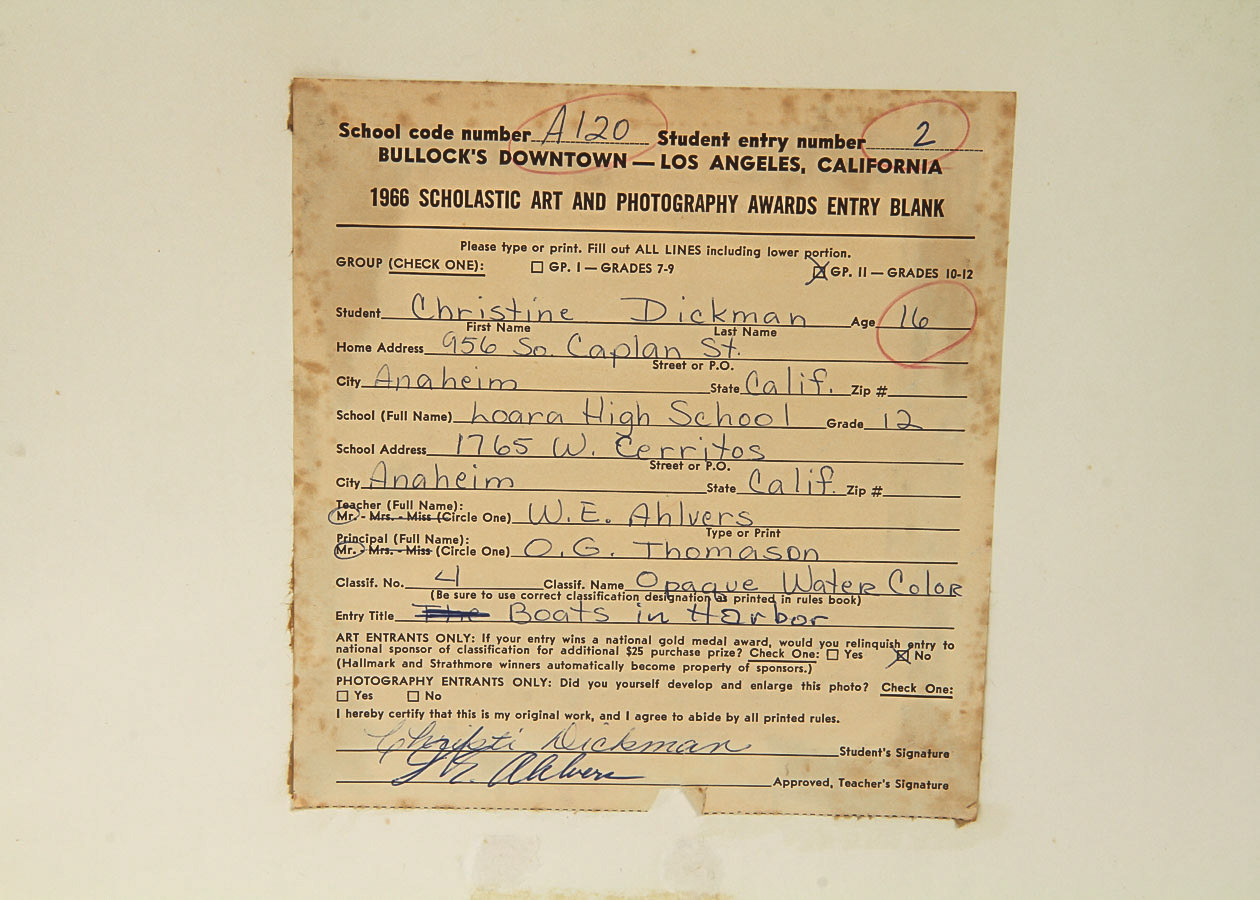 School code number A120 Student entry number 2
BULLOCK'S DOWNTOWN — LOS ANGELES, CALIFORNIA
1966 SCHOLASTIC ART AND PHOTOGRAPHY AWARDS ENTRY BLANK
Please type or print. Fill out ALL LINES including lower portion.
GROUP (CHECK ONE): ☐ GP. I — GRADES 7-9 ☒ GP. II — GRADES 10-12
Student Christine Dickman Age 16
First Name Last Name
Home Address 956 So. Caplan St.
Street or P.O.
City Anaheim State Calif. Zip #
School (Full Name) Loara High School Grade 12
School Address 1765 W. Cerritos
Street or P.O.
City Anaheim State Calif. Zip #
Teacher (Full Name):
Mr. - Mrs. - Miss (Circle One) W.E. Ahlvers
Type or Print
Principal (Full Name):
Mr. - Mrs. - Miss (Circle One) O.G. Thomason
Classif. No. 4 Classif. Name Opaque Water Color
(Be sure to use correct classification designation as printed in rules book)
Entry Title The Boats in Harbor
ART ENTRANTS ONLY: If your entry wins a national gold medal award, would you relinquish entry to
national sponsor of classification for additional $25 purchase prize? Check One: ☐ Yes ☒ No
(Hallmark and Strathmore winners automatically become property of sponsors.)
PHOTOGRAPHY ENTRANTS ONLY: Did you yourself develop and enlarge this photo? Check One:
☐ Yes ☐ No
I hereby certify that this is my original work, and I agree to abide by all printed rules.
Christi Dickman Student's Signature
Ahlvers Approved, Teacher's Signature